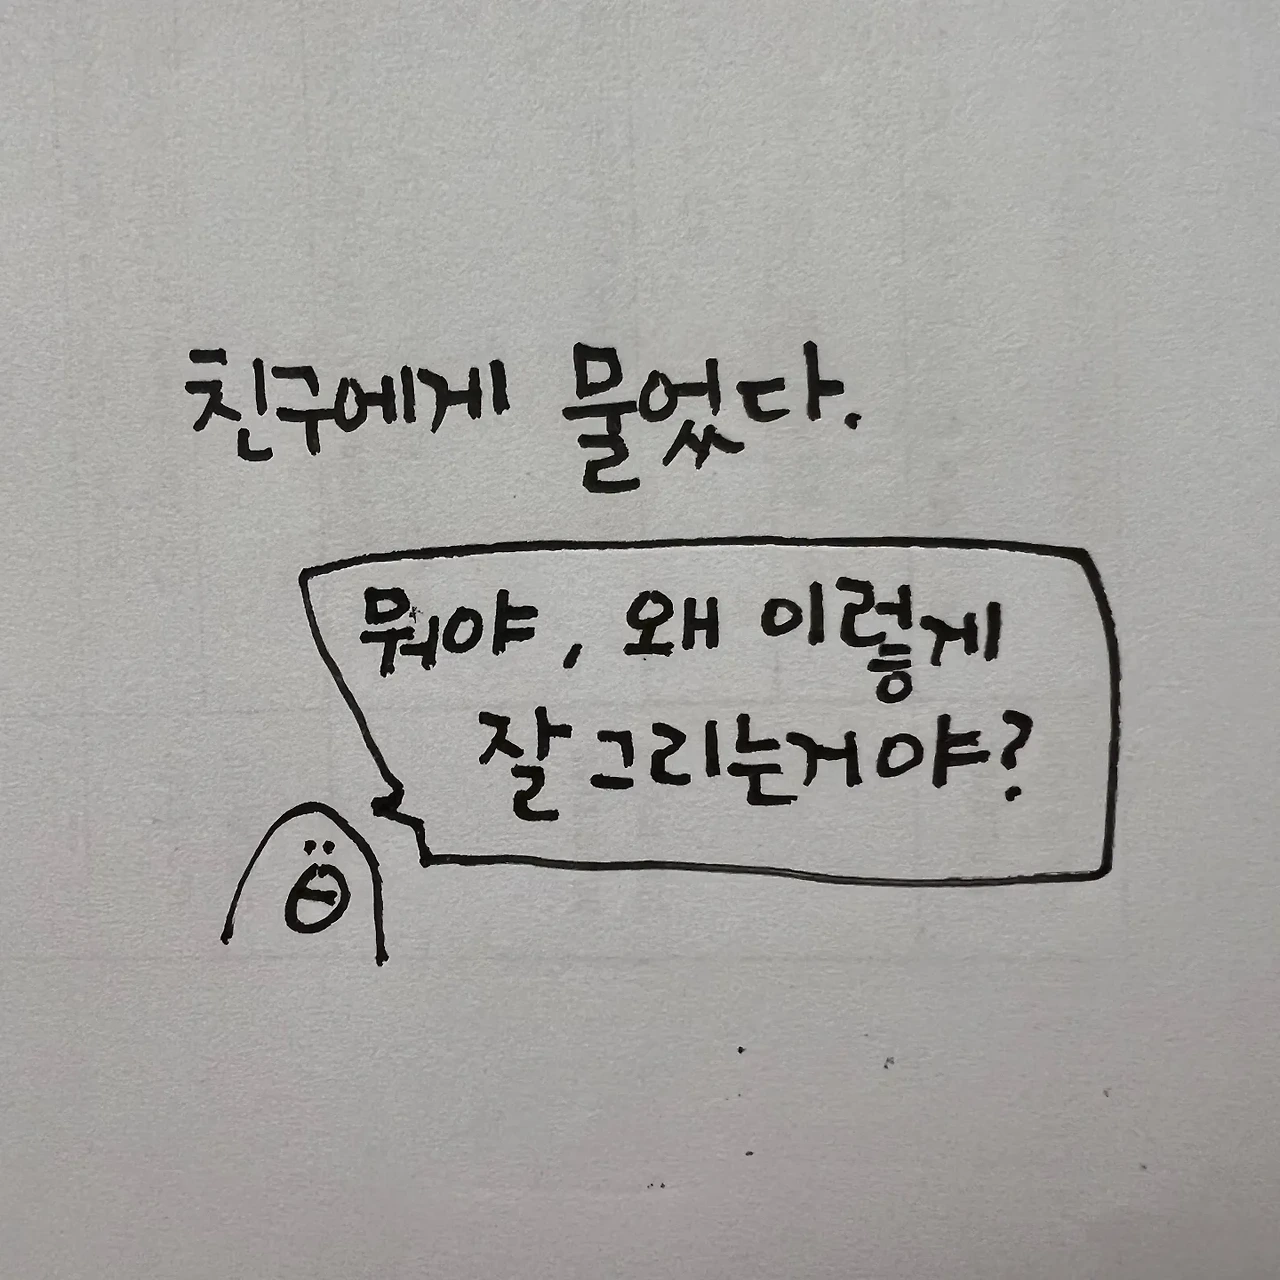 친구에게 물었다.
뭐야, 왜 이렇게
잘 그리는거야?